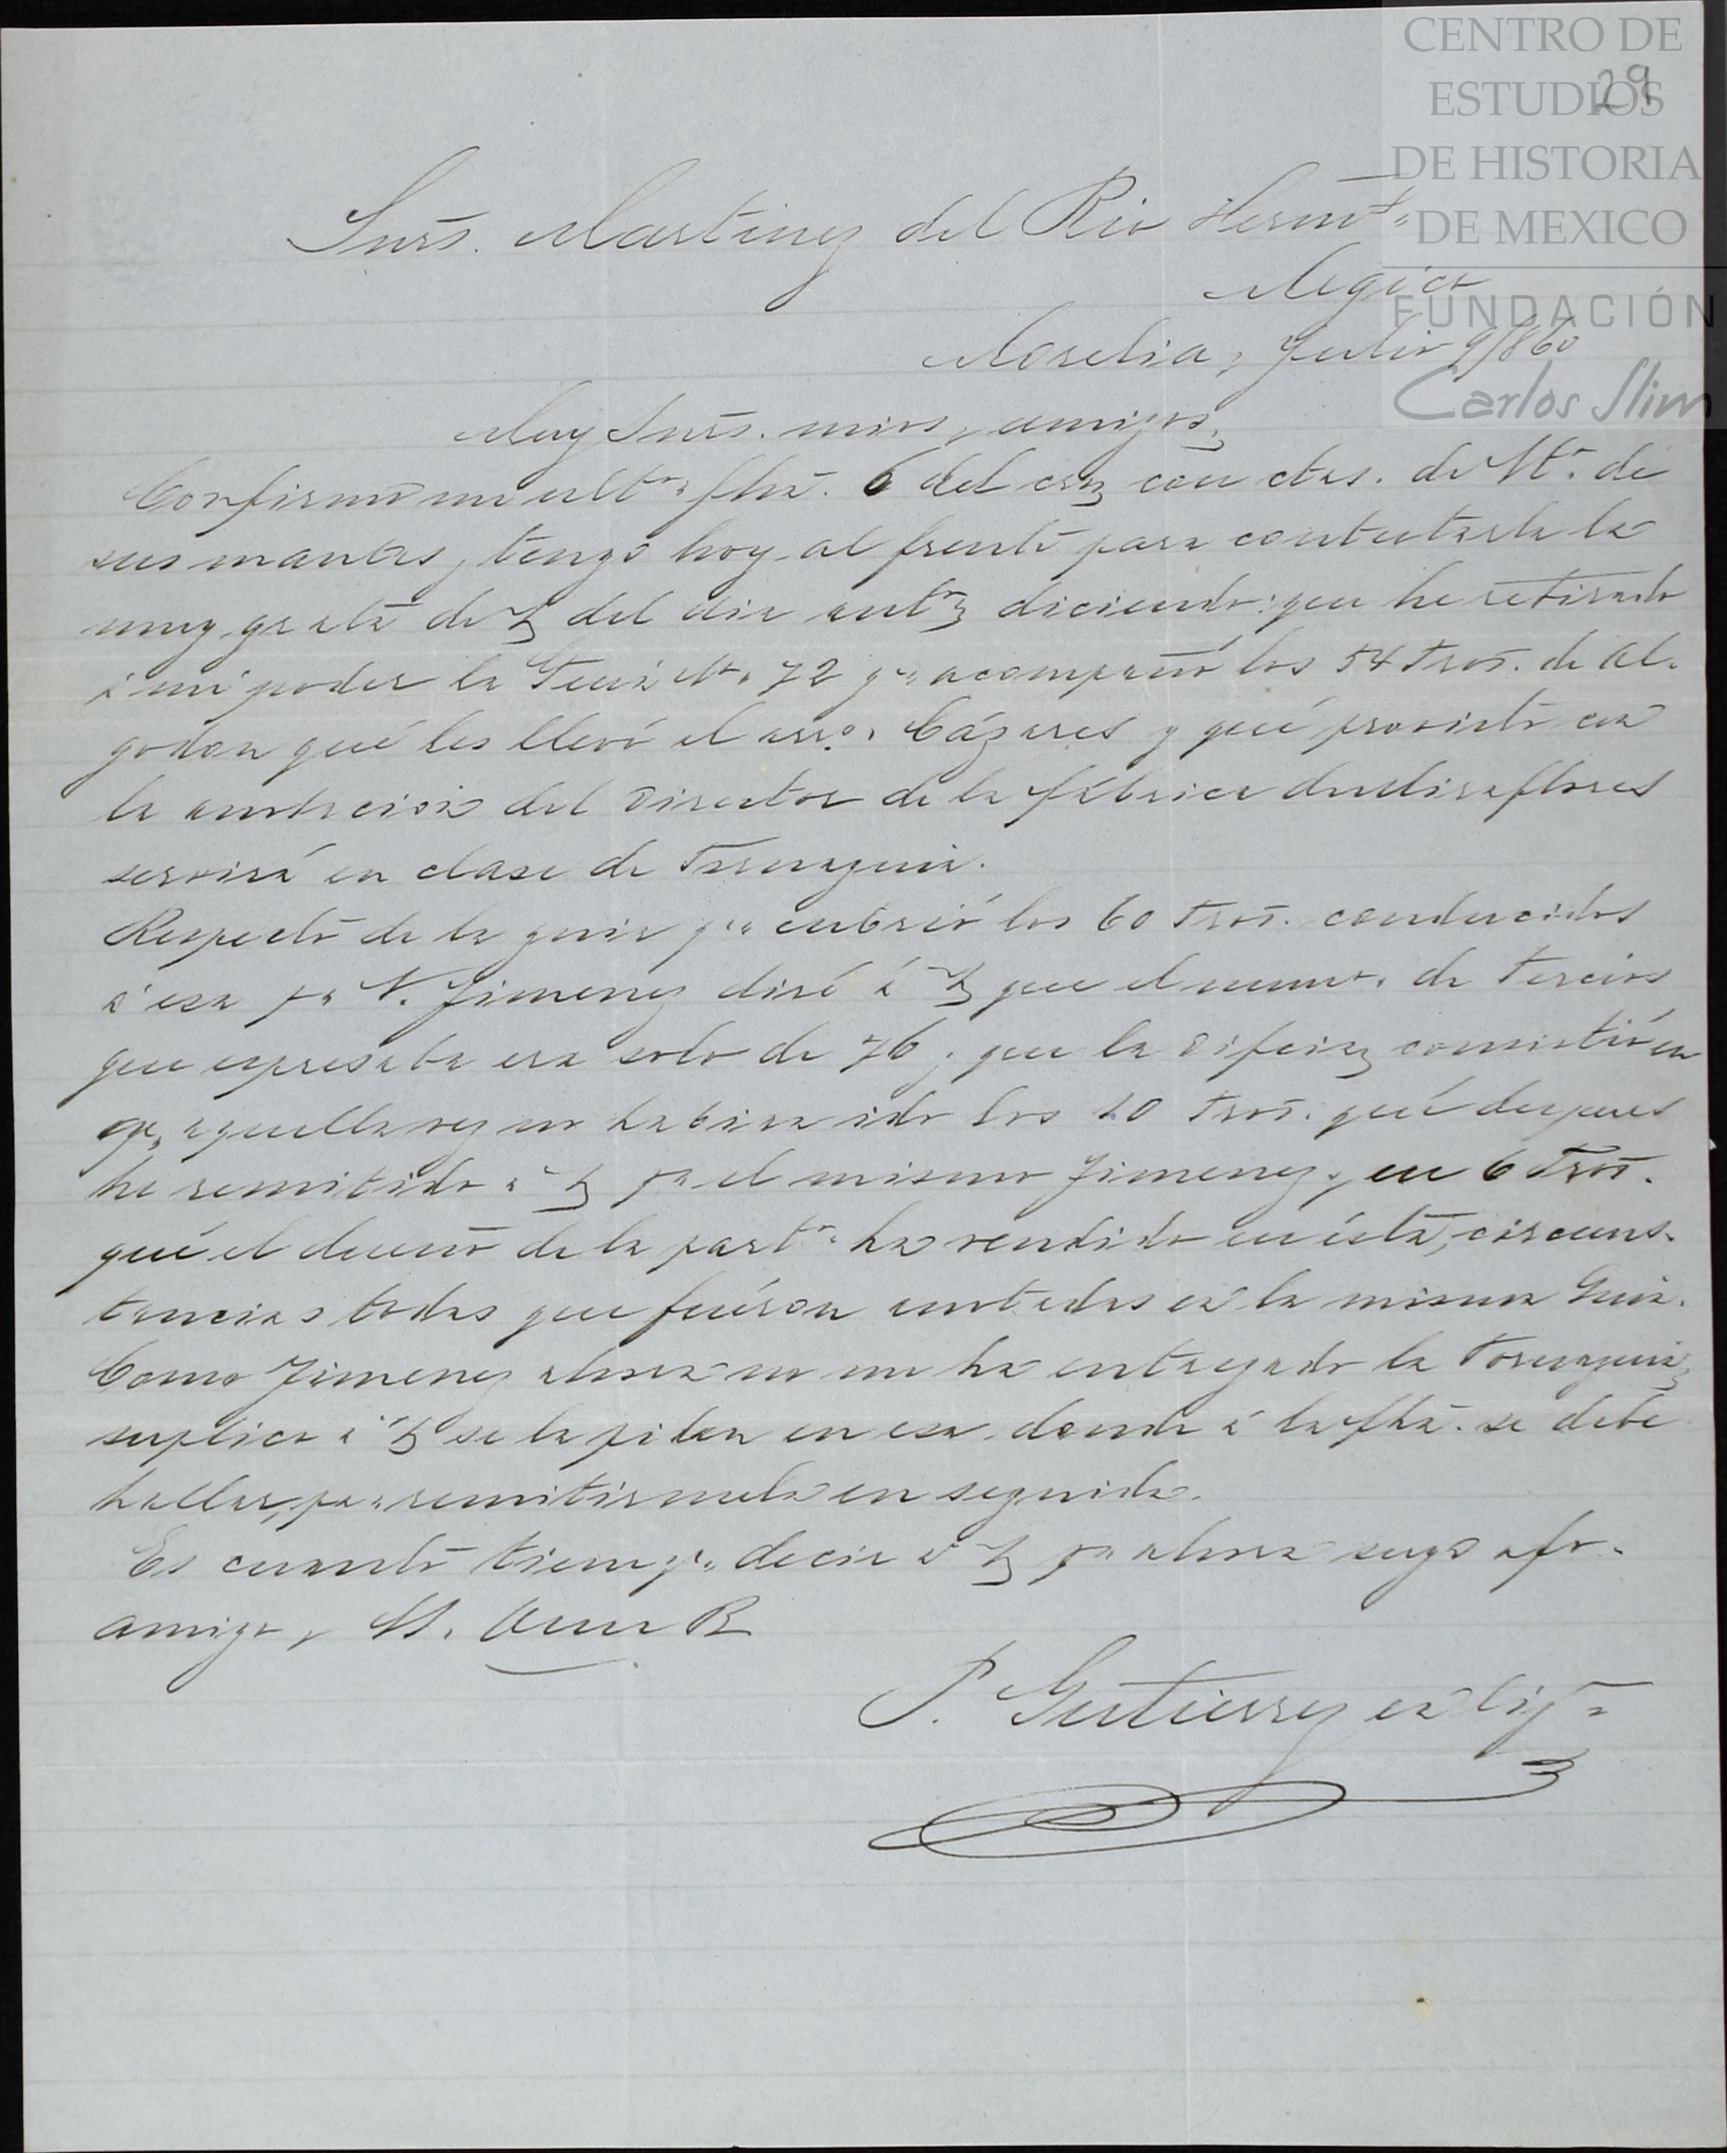 CENTRO DE
ESTUDIOS
DE HISTORIA
DE MEXICO
FUNDACIÓN
Carlos Slim
29
Snrs. Martinez del Rio Herms.
Megico
Morelia, Julio 9/860
Muy Snrs. mios y amigos,
Confirmo mi ultª fha. 6 del con ctas. de Vtª de
sus mantas, tengo hoy al frente para contestarla la
muy grata de del dia antr diciendo: que he retirado
á mi poder la Guia No. 72 qe acompañó los 54 tros. de al-
godon qué les llevó el arro. Cázares y qué provisto con
la anotacion del Director de la fábrica de Miraflores
servirá en clase de Tornaguia.
Respecto de la guia qe cubrió los 60 tros. conducidos
á esa pr V. Jimenez diré á que el numo. de tercios
que expresaba era solo de 76, que la difcia consistió en
qe aquella vez no habian ido los 10 tros. qué despues
he remitido á pr el mismo Jimenez, y en 6 tros.
qué el dueño de la partª ha vendido en ésta, circuns-
tancias todas que fuéron anotadas en la misma Guia.
Como Jimenez ahora no me ha entregado la Tornaguia,
suplico á se la pidan en esa, donde á la fha. se debe
hallar, pa remitirmela en seguida.
Es cuanto tiene qe decir á pr ahora suyo afo.
amigo y
P. Gutierrez en Cipª